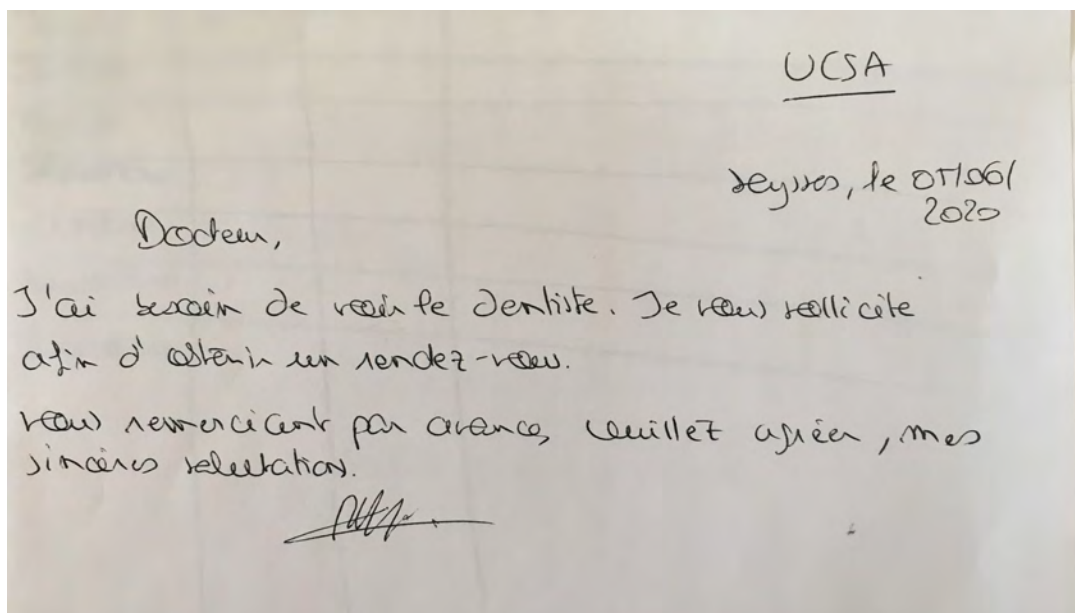 UCSA
Seysses, le 05/06/
2020
Docteur,
J'ai besoin de voir le dentiste. Je vous sollicite
afin d'obtenir un rendez-vous.
Vous remerciant par avance, veuillez agréer, mes
sincères salutations.